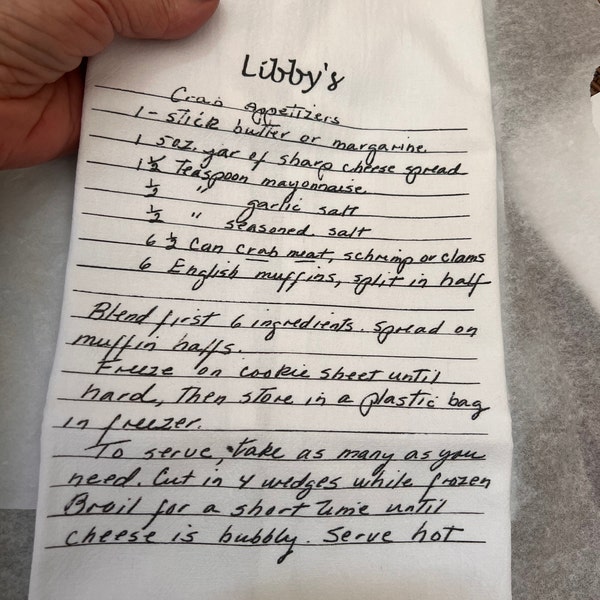 Libby's
Crab appetizers
1 - stick butter or margarine.
1 5oz. jar of sharp cheese spread
1 ½ teaspoon mayonnaise
½ " garlic salt
½ " seasoned salt
6 ½ can crab meat, schrimp or clams
6 English muffins, split in half
Blend first 6 ingredients. Spread on
muffin halfs.
Freeze on cookie sheet until
hard, Then store in a plastic bag
in freezer.
To serve, take as many as you
need. Cut in 4 wedges while frozen
Broil for a short time until
cheese is bubbly. Serve hot